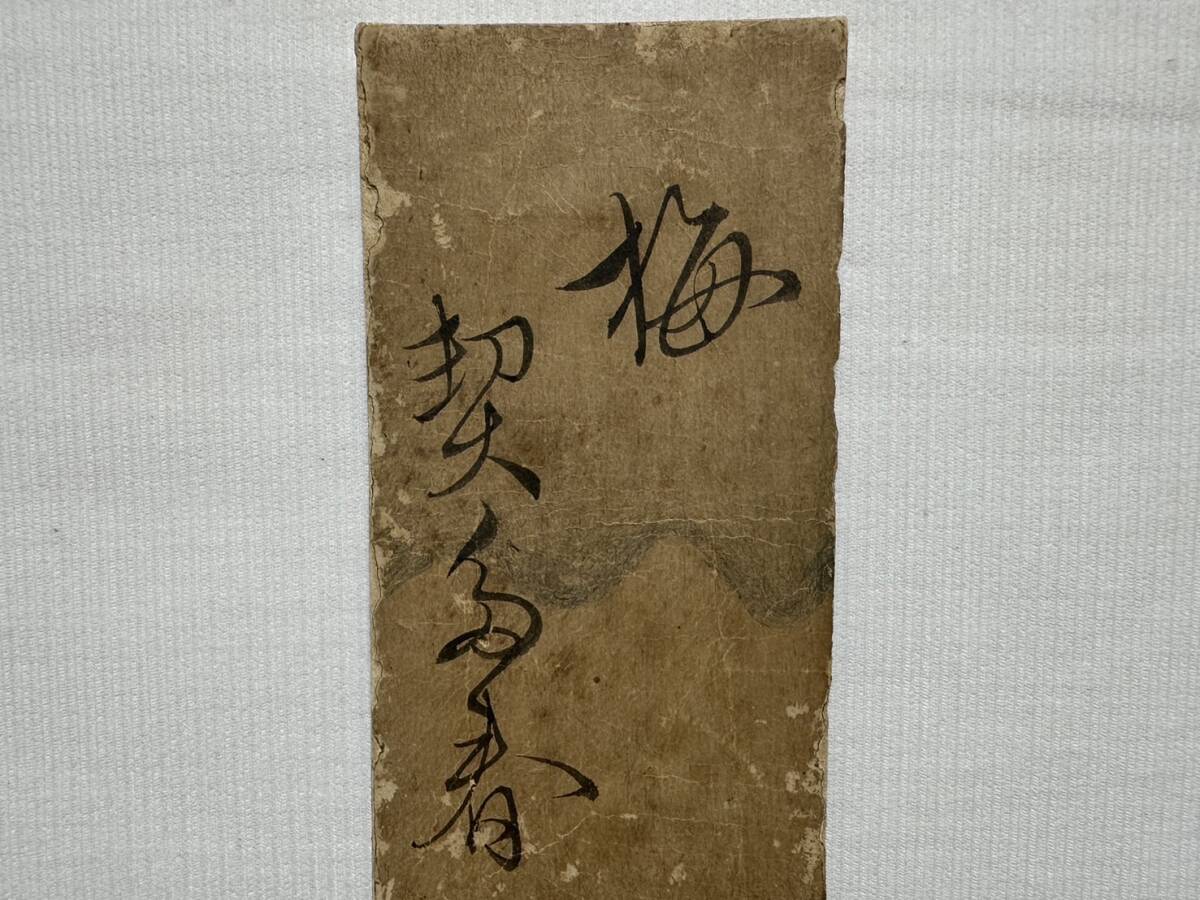 梅
契多春